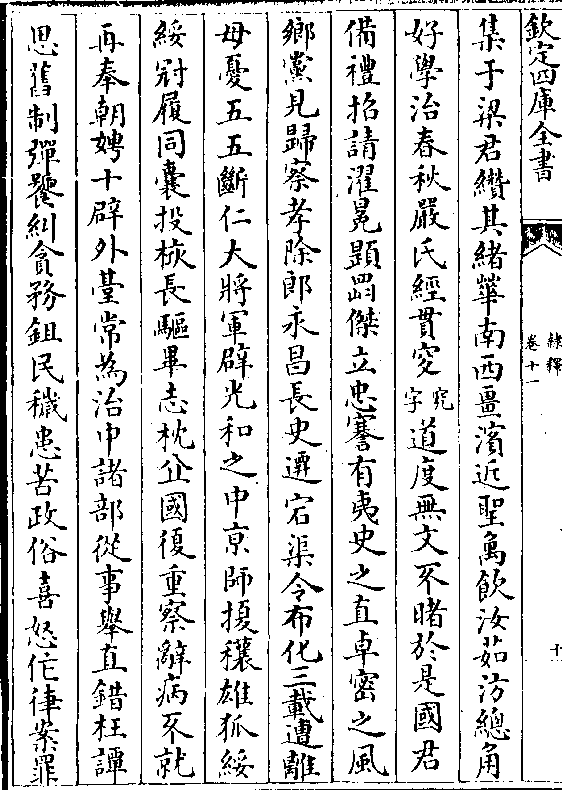 欽定四庫全書
隸釋
卷十一
十
集于梁君纘其緒華南西畺濱近聖禹飲汶茹汸總角
好學治春秋嚴氏經貫穾究字道度無文不睹於是國君
備禮招請濯冕題剛傑立忠謇有夷史之直卓密之風
鄉黨見歸察孝除郎永昌長史遷宕渠令布化三載遭離
母憂五五斷仁大將軍辟光和之中亰師擾穰雄狐綏
綏冠履同囊投核長驅畢志枕丘國復重察辭病不就
再奉朝娉十辟外臺常為治中諸部從事舉直錯枉譚
思舊制彈饕糾貪務鉏民穢患苦政俗喜怒作律案罪